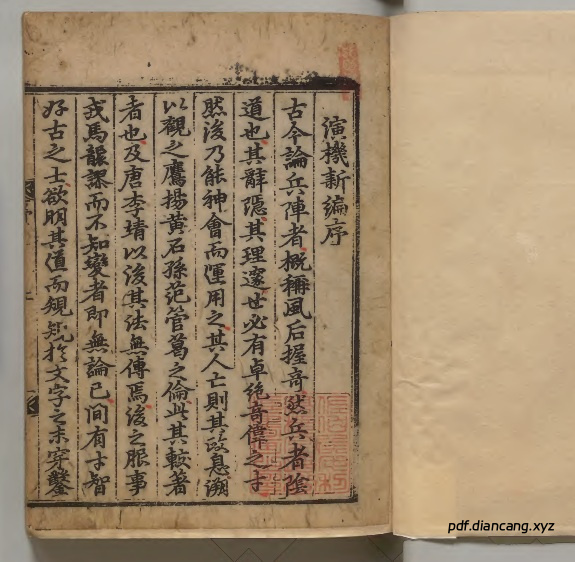 演機新編序
古今論兵陣者概稱風后握奇然兵者陰
道也其辭隱其理邃世必有卓絶奇偉之才
然後乃能神會而運用之其人亡則其政息溯
以觀之鷹揚黃石孫范管葛之倫此其較著
者也及唐李靖以後其法無傳焉後之服事
戎馬韜鈐而不知變者即無論已間有才智
好古之士欲明其道而規規於文字之末穿鑿
pdf.diancang.xyz